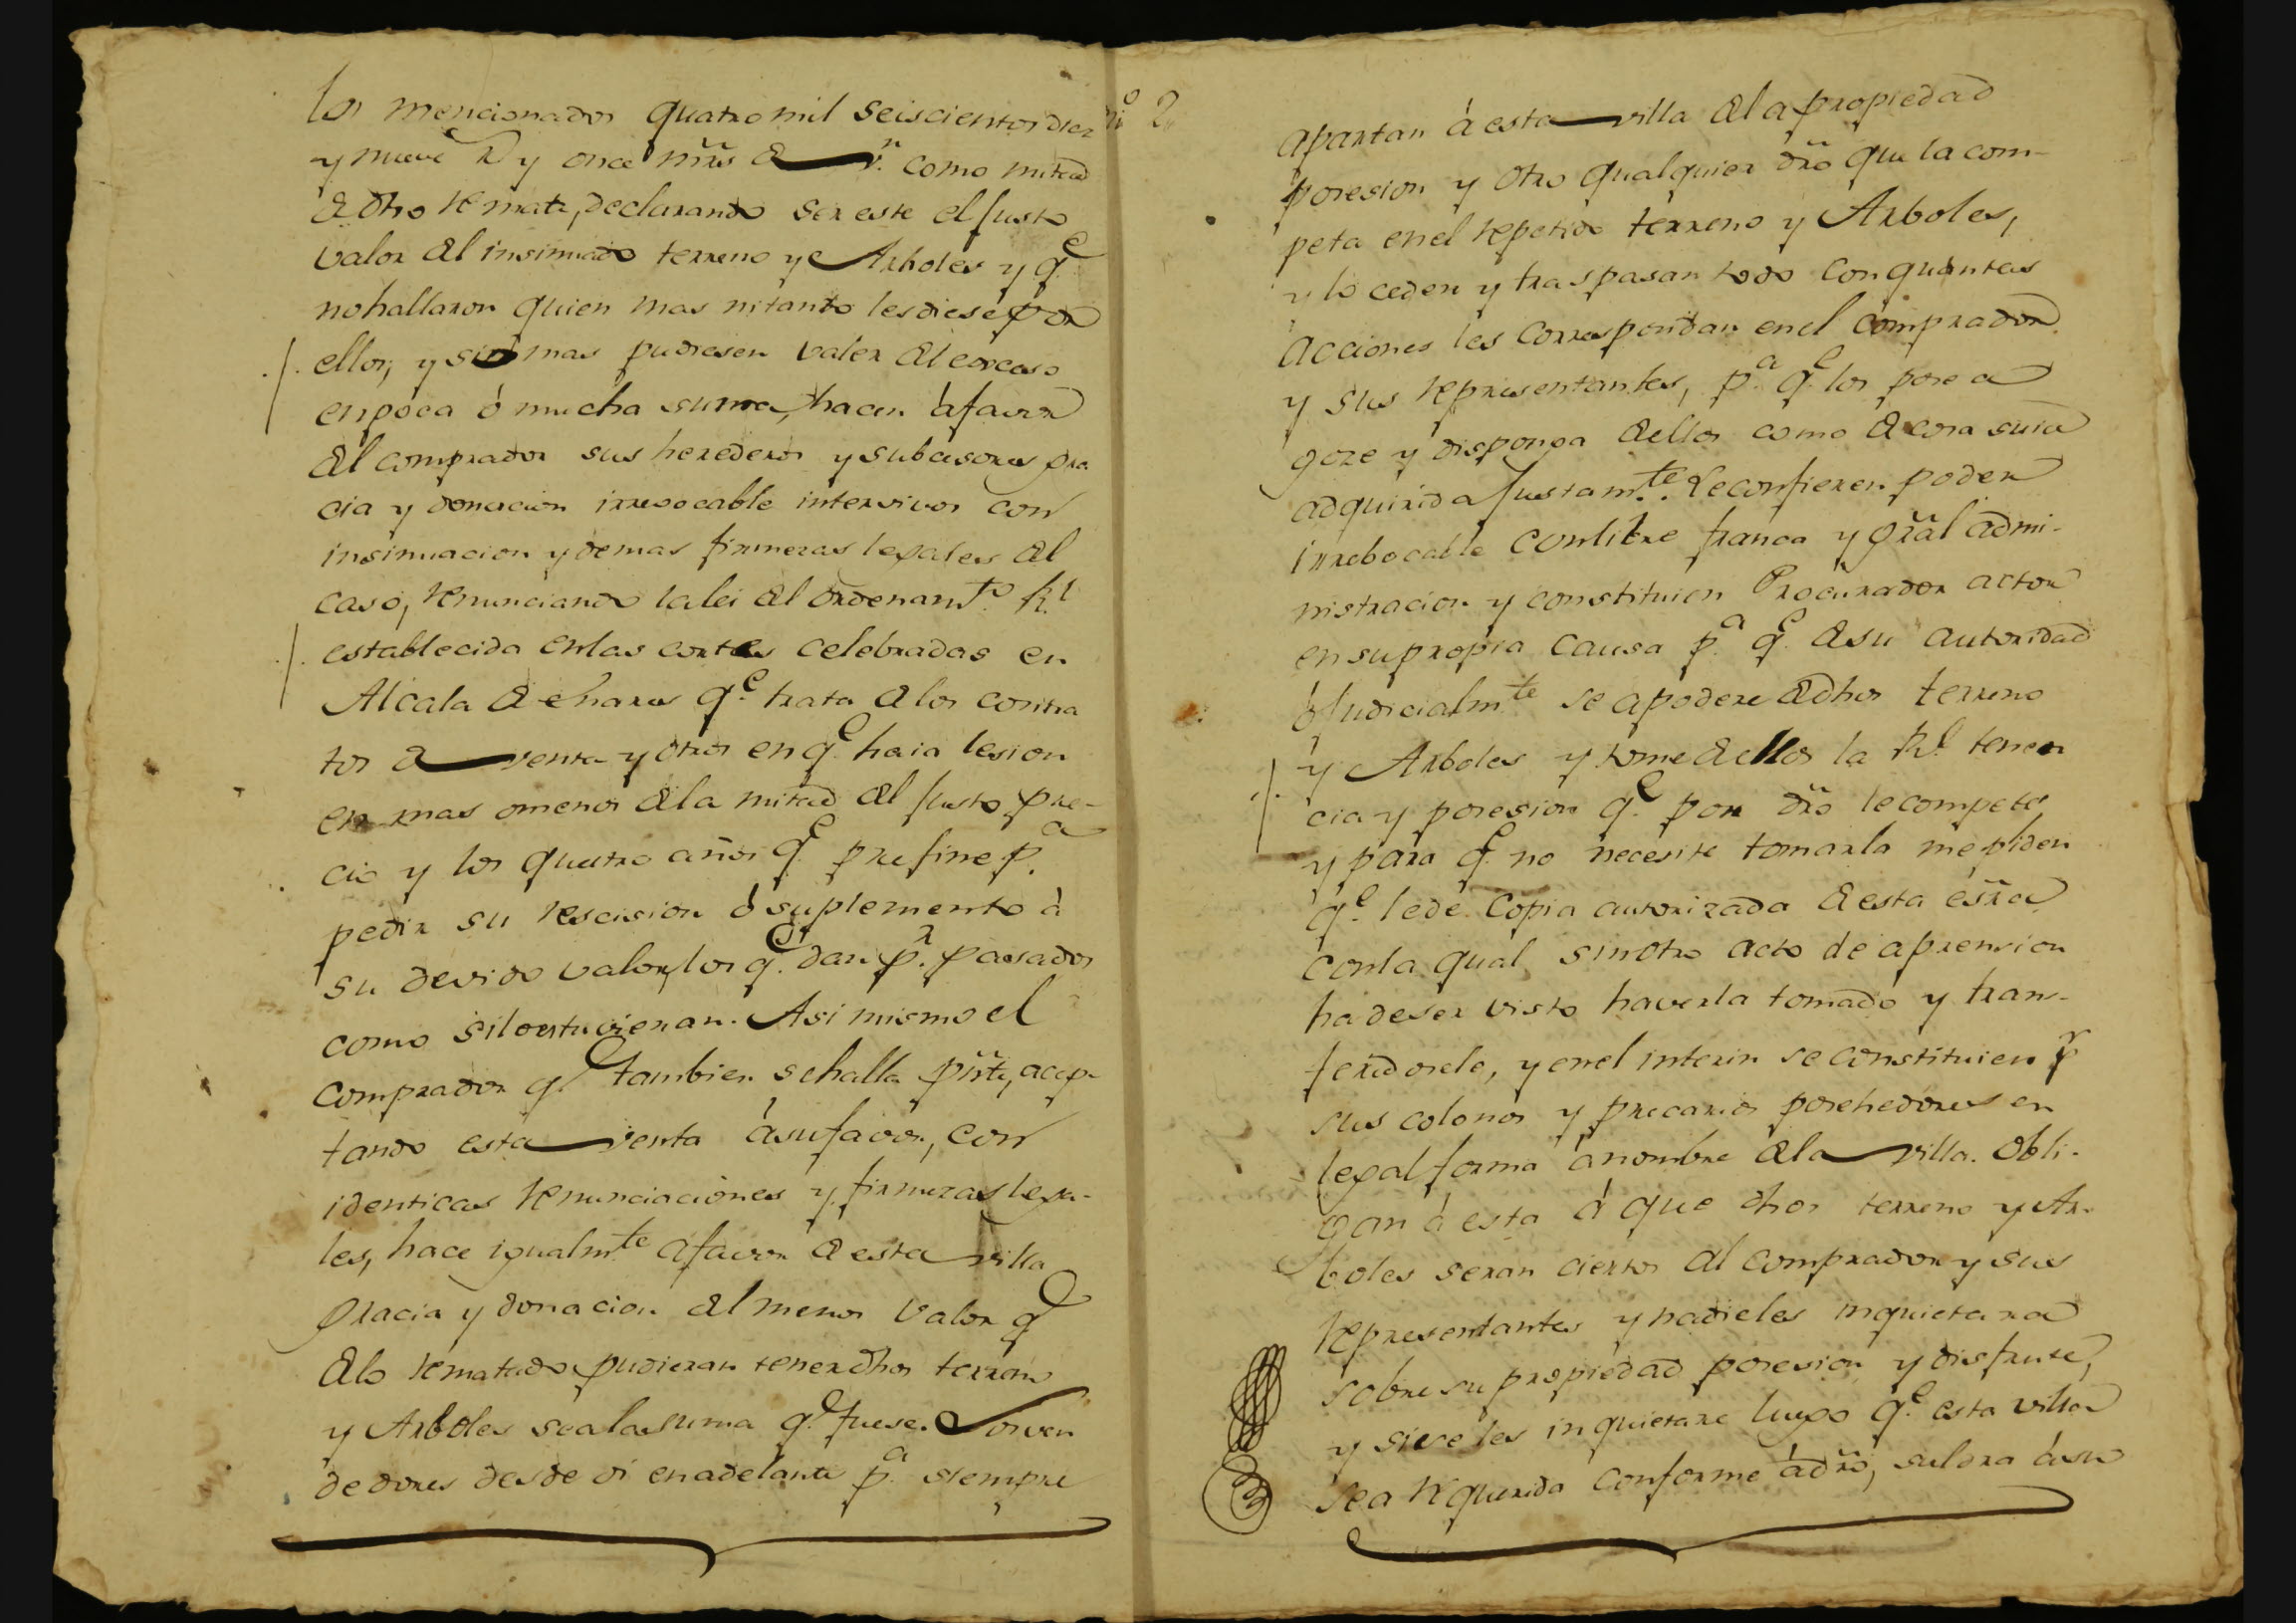 los mencionados quatro mil seiscientos diez
y nueve rs. y once mrs. de vn. como mitad
de dho remate, declarando ser este el justo
valor del insinuado terreno y Arboles y qe.
no hallaron quien mas ni tanto les diese por
ellos; y si mas pudiesen valer del exceso
en poca ó mucha suma, hacen á favor
del comprador sus herederos y subcesores gra
cia y donacion irrevocable intervivos con
insinuacion y demas firmezas legales del
caso, renunciando la lei del ordenamto. Rl.
establecida en las cortes celebradas en
Alcala de Enares qe. trata de los contra
tos de venta y otros en qe. haia lesion
en mas o menos de la mitad del justo pre-
cio y los quatro años qe. prefine pa.
pedir su rescision ó suplemento á
su devido valor, los qe. dan pr. pasados
como si lo estuvieran. Asi mismo el
comprador qe. tambien se halla pnte, acep-
tando esta venta á su favor, con
identicas renunciaciones y firmezas lega-
les, hace igualmte. a favor de esta villa
gracia y donacion del menos valor qe
de lo rematado pudieran tener dhos terreno
y Arboles sea la suma qe. fuese. Los ven
dedores desde oi en adelante pa. siempre
2.
apartan á esta villa de la propiedad
posesion y otro qualquier dro que la com-
peta en el repetido terreno y Arboles,
y lo ceden y traspasan todo con quantas
acciones les correspondan en el comprador
y sus representantes, pa. qe. los posea
goze y disponga de ellos como de cosa suia
adquirida justamte. Le confieren poder
irrebocable con libre franca y gral admi-
nistracion y constituien Procurador actor
en su propia causa pa. qe. de su autoridad
ó judicialmte. se apodere de dhos terreno
y Arboles y tome de ellos la Rl. tenen
cia y posesion qe. por dro le compete
y para qe. no necesite tomarla me piden
qe. le de copia autorizada de esta esra
con la qual sin otro acto de aprension
ha de ser visto haverla tomado y trans-
feridosele, y en el interin se constituien pr
sus colonos y precarios posehedores en
legal forma á nombre de la villa. Obli-
gan á esta á que dhos terreno y Ar-
boles seran ciertos al comprador y sus
representantes y nadie les inquietara
sobre su propiedad posesion y disfrute,
y si se les inquietare luego qe. esta villa
sea requerida conforme á dro, saldra á su